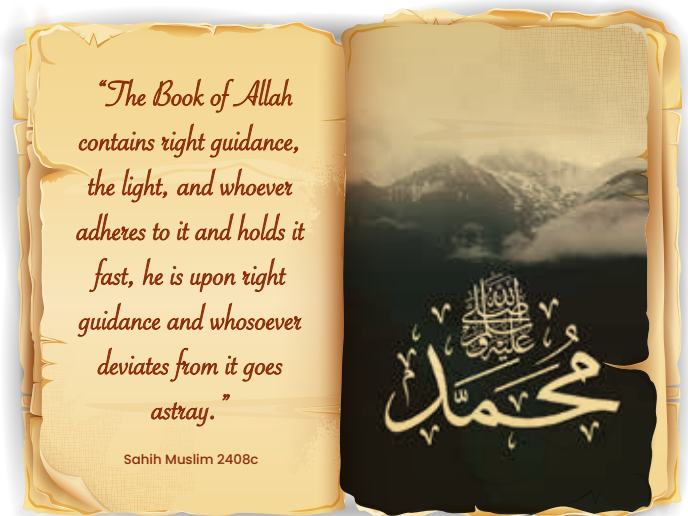 “The Book of Allah
contains right guidance,
the light, and whoever
adheres to it and holds it
fast, he is upon right
guidance and whosoever
deviates from it goes
astray.”
Sahih Muslim 2408c
صلى الله
عليه وسلم
محمد